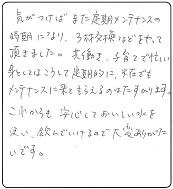 気がつけばまた定期メンテナンスの
時期になり、3材交換などをやって
頂きました。共働き、子育てで忙しい
身としてはこうして定期的に、不在でも
メンテナンスに来てもらえるのはたすかります。
これからも安心しておいしい水を
使い、飲んでいけるので大変ありがた
いです。